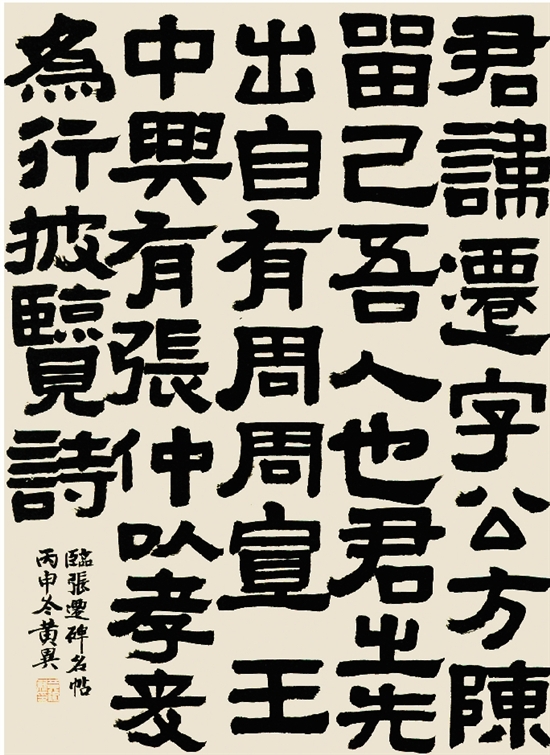 君諱遷字公方陳
留己吾人也君之先
出自有周周宣王
中興有張仲以孝友
為行披覽詩
臨張遷碑名帖
丙申冬黃異